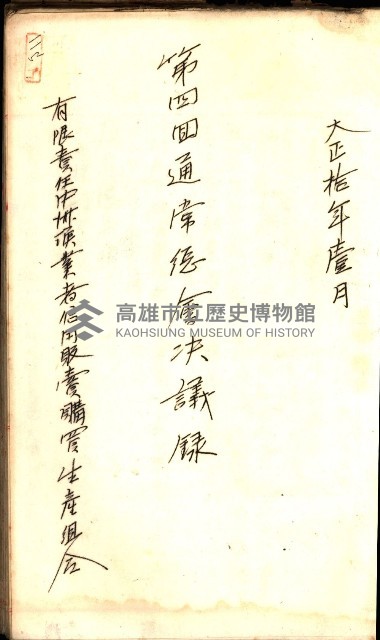 大正拾年壹月
第四回通常総會决議録
有限責任中洲漁業者信用販賣購買生産組合
高雄市立歷史博物館
KAOHSIUNG MUSEUM OF HISTORY